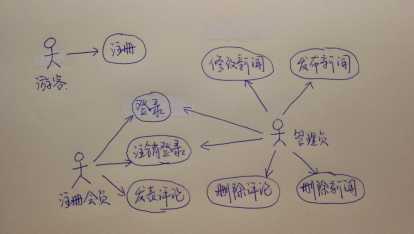 注册
游客
修改新闻
发布新闻
登录
注销登录
管理员
注册会员
发表评论
删除评论
删除新闻